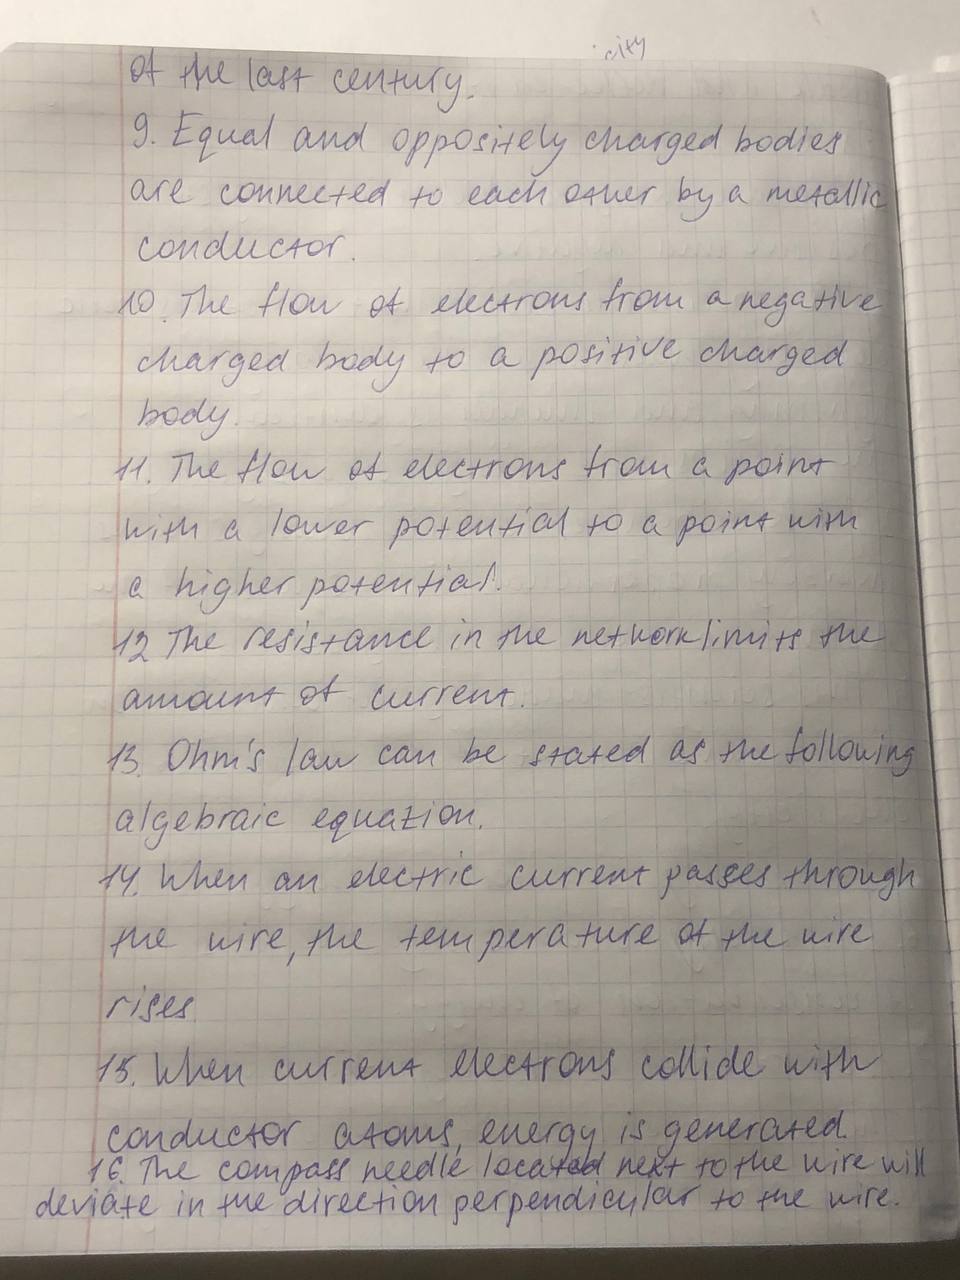 city
of the last century.
9. Equal and oppositely charged bodies
are connected to each other by a metallic
conductor.
10. The flow of electrons from a negative
charged body to a positive charged
body.
11. The flow of electrons from a point
with a lower potential to a point with
a higher potential.
12 The resistance in the network limits the
amount of current.
13. Ohm's law can be stated as the following
algebraic equation.
14. When an electric current passes through
the wire, the temperature of the wire
rises
15. When current electrons collide with
conductor atoms, energy is generated.
16. The compass needle located next to the wire will
deviate in the direction perpendicular to the wire.